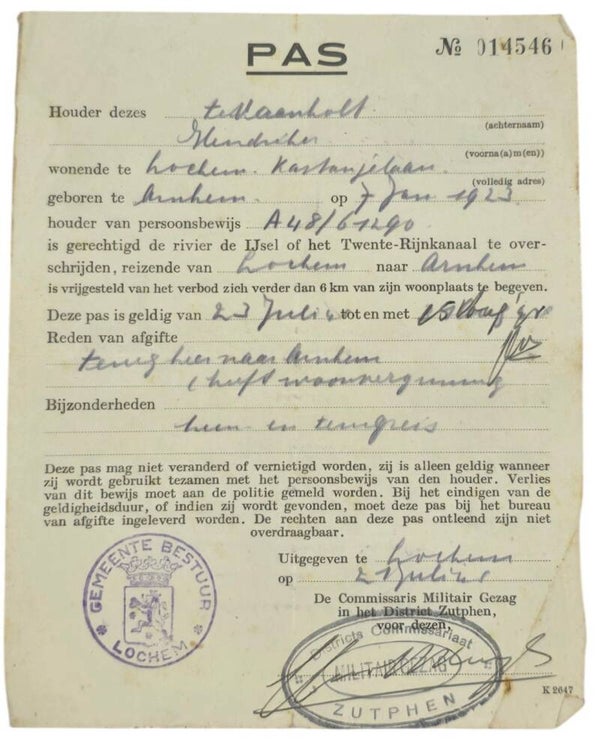 PAS
№ 014546
Houder dezes te Vaanholt
(achternaam)
(voorna(a)m(en))
wonende te Lochem. Kastanjelaan
(volledig adres)
geboren te Arnhem. op 7 Jan 1923
houder van persoonsbewijs A48/61290
is gerechtigd de rivier de IJsel of het Twente-Rijnkanaal te over-
schrijden, reizende van Lochem naar Arnhem
is vrijgesteld van het verbod zich verder dan 6 km van zijn woonplaats te begeven.
Deze pas is geldig van 23 Juli tot en met 15
Reden van afgifte
terugkeer naar Arnhem
(heeft woonvergunning
Bijzonderheden
heen en terugreis
Deze pas mag niet veranderd of vernietigd worden, zij is alleen geldig wanneer
zij wordt gebruikt tezamen met het persoonsbewijs van den houder. Verlies
van dit bewijs moet aan de politie gemeld worden. Bij het eindigen van de
geldigheidsduur, of indien zij wordt gevonden, moet deze pas bij het bureau
van afgifte ingeleverd worden. De rechten aan deze pas ontleend zijn niet
overdraagbaar.
Uitgegeven te Lochem
op Juli
De Commissaris Militair Gezag
in het District Zutphen,
voor dezen,
GEMEENTE BESTUUR
LOCHEM
Districts Commissariaat
MILITAIR GEZAG
ZUTPHEN
K 2647